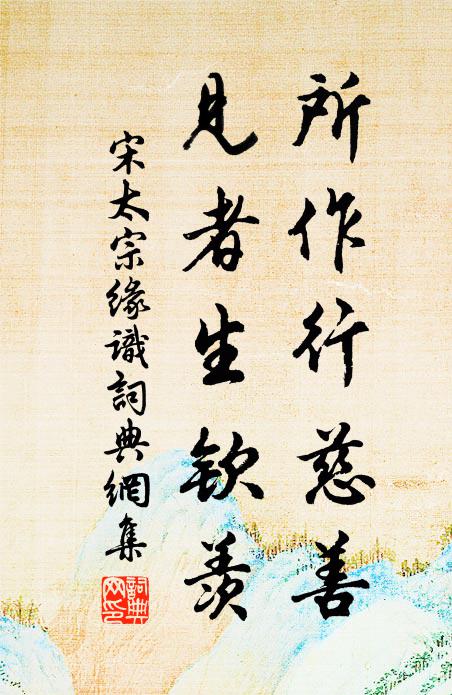 所作行慈善
見者生欽羨
宋太宗緣識詞典網集
詞典
网印